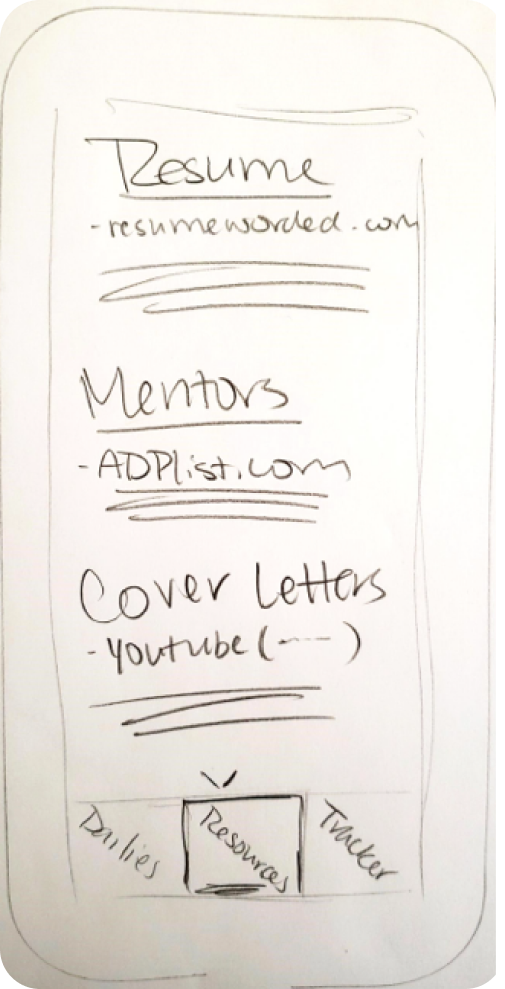 Resume
- resumeworded.com
Mentors
- ADPlist.com
Cover Letters
- Youtube (----)
Dailies
Resources
Tracker